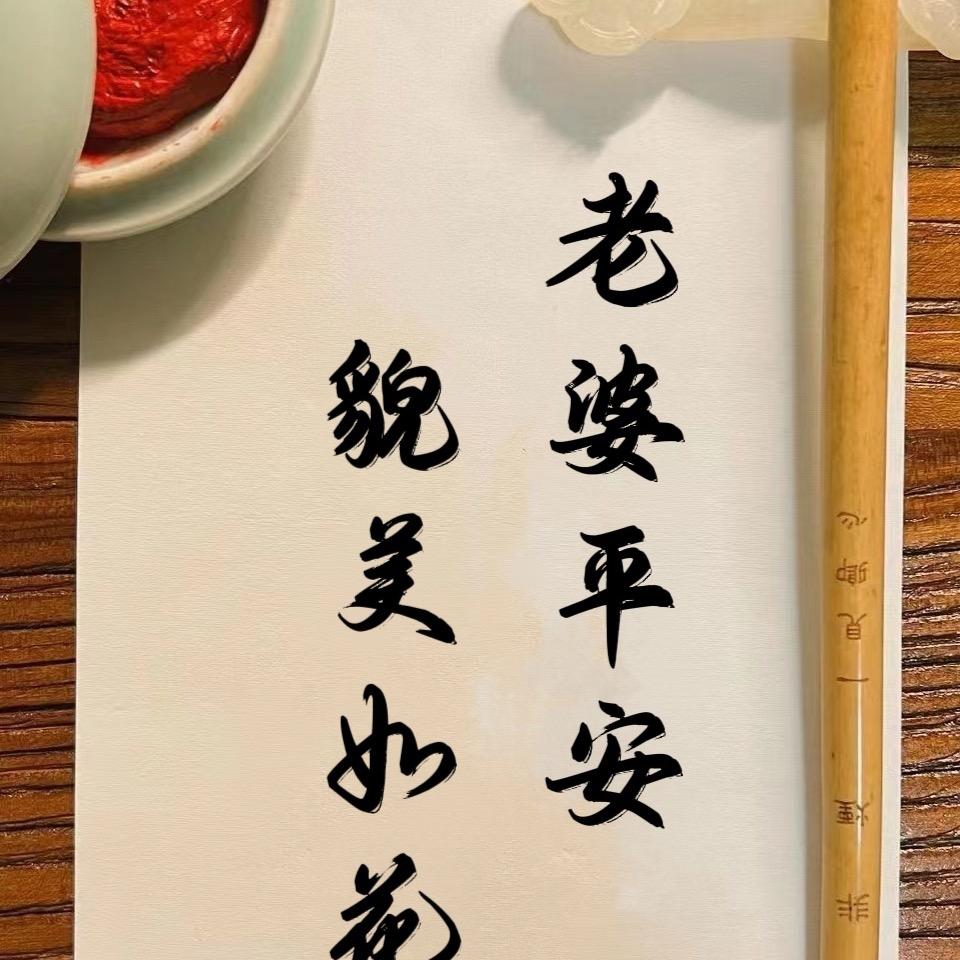 老婆平安
貌美如花
非煙 一見卿心